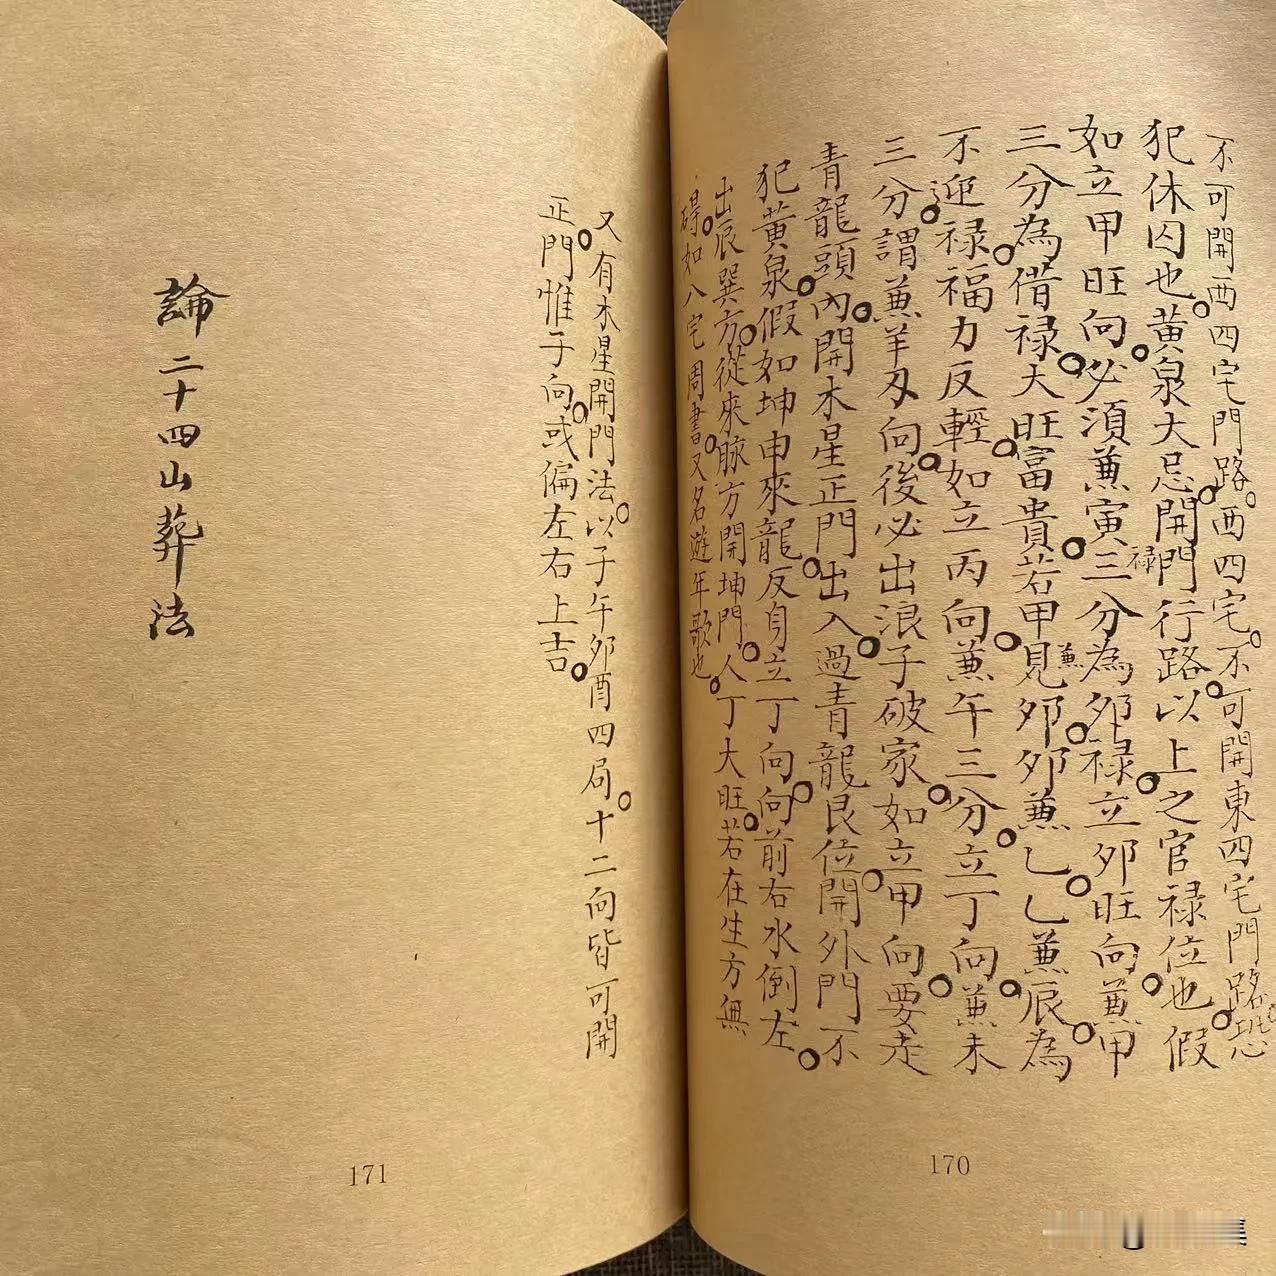 不可開西四宅門路。西四宅。不可開東四宅門路。恐
犯休囚也。黃泉大忌。開門行路。以上之官祿位也。假
如立甲旺向。必須兼寅三分。為夘祿。立夘旺向。兼甲
祿
三分為借祿。大旺富貴。若甲見夘。夘兼乙。乙兼辰。為
兼
不迎祿。福力反輕。如立丙向。兼午三分。立丁向。兼未
三分。謂兼羊刃向。後必出浪子破家。如立甲向。要走
青龍頭。內開木星正門出入。過青龍艮位。開外門。不
犯黃泉。假如坤申來龍。反身立丁向。向前右水倒左。
出辰巽方。從來脉方開坤門。人丁大旺。若在生方無
碍。如八宅周書。又名遊年歌也。
170
又有木星開門法。以子午夘酉四局。十二向皆可開
正門。惟子向。或偏左右上吉。
論二十四山葬法
171